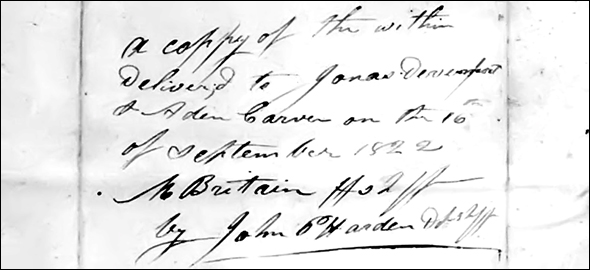 a coppy of the within
Deliver'd to Jonas Devenport
& Aden Carver on the 16th
of September 1822
M Britain
by John P Harden